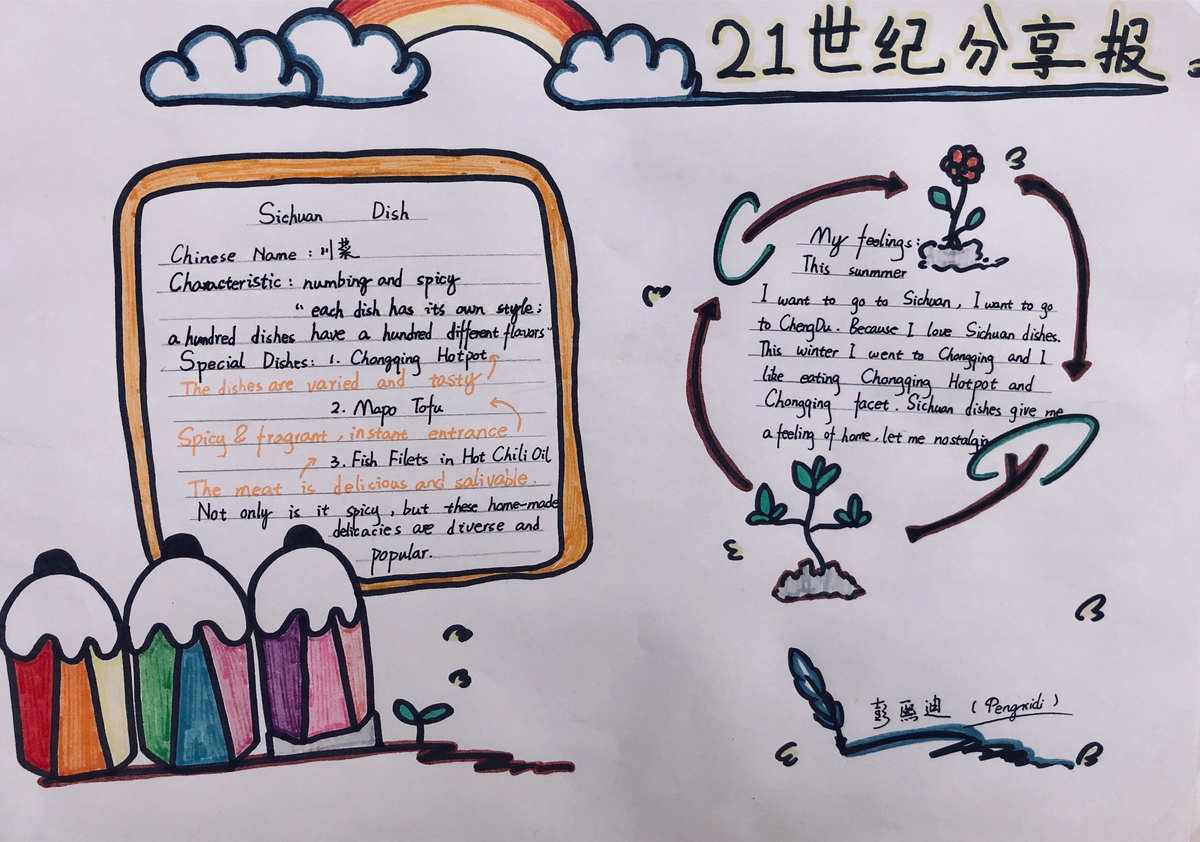 21世纪分享报
Sichuan Dish
Chinese Name : 川菜
Characteristic : numbing and spicy
"each dish has its own style;
a hundred dishes have a hundred different flavors"
Special Dishes: 1. Chongqing Hotpot
The dishes are varied and tasty
2. Mapo Tofu
Spicy & fragrant, instant entrance
3. Fish Filets in Hot Chili Oil
The meat is delicious and salivable.
Not only is it spicy, but these home-made
delicacies are diverse and
popular.
My feelings:
This sunmmer
I want to go to Sichuan, I want to go
to ChengDu. Because I love Sichuan dishes.
This winter I went to Chongqing and I
like eating Chongqing Hotpot and
Chongqing facet. Sichuan dishes give me
a feeling of home. let me nostalgia
彭熙迪 (Pengxidi)